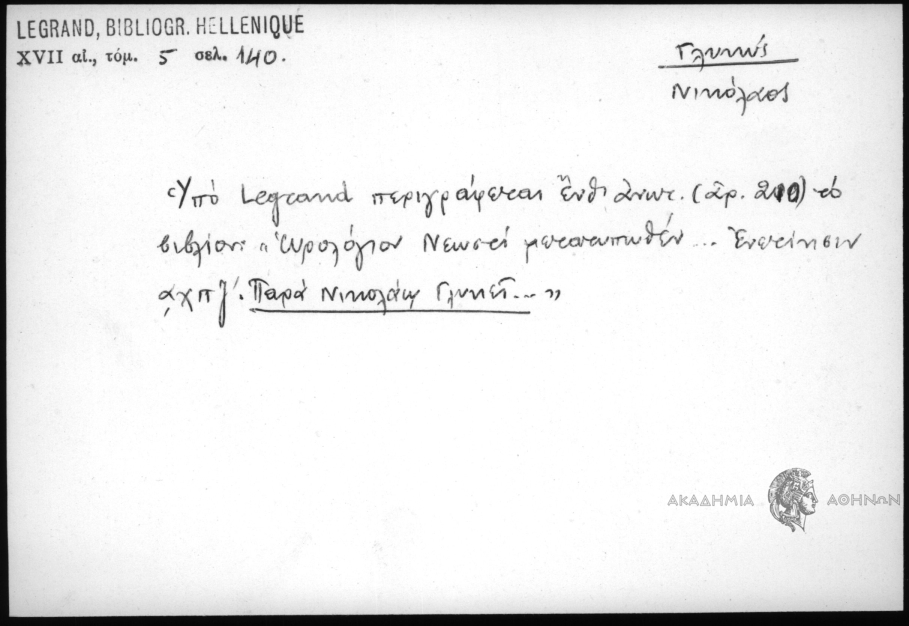 LEGRAND, BIBLIOGR. HELLENIQUE
XVII αἰ., τόμ. 5 σελ. 140.
Γλυκύς
Νικόλαος
Ὑπό Legrand περιγράφεται ἔνθ' ἀνωτ. (ἀρ. 210) τό
βιβλίον: "Ὡρολόγιον Νεωστί μετατυπωθέν... Ἐνετίησιν
αχπζ'. Παρά Νικολάῳ Γλυκεῖ..."
ΑΚΑΔΗΜΙΑ ΑΘΗΝΩΝ